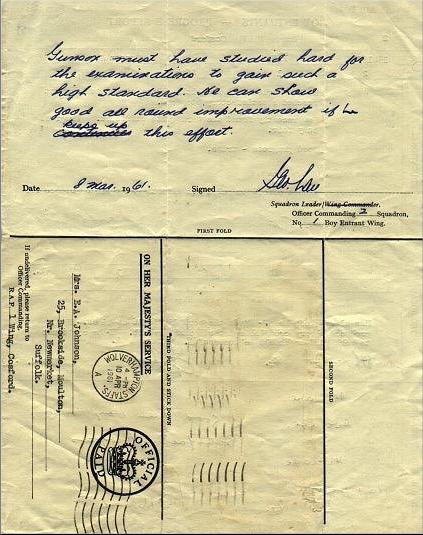 Gunson must have studied hard for
the examinations to gain such a
high standard. He can show
good all round improvement if he
keeps up this effort.
Date 8 Mar. 1961. Signed
Squadron Leader/Wing Commander.
Officer Commanding 2 Squadron,
No. 1 Boy Entrant Wing.
FIRST FOLD
ON HER MAJESTY'S SERVICE
Mrs. E.A. Johnson,
25, Brookside, Moulton,
Nr. Newmarket,
Suffolk.
If undelivered, please return to
Officer Commanding,
R.A.F. 1 Wing, Cosford.
WOLVERHAMPTON STAFFS.
4 - PM
10 APR
1961
A
OFFICIAL
PAID
*THIRD FOLD AND STICK DOWN
SECOND FOLD